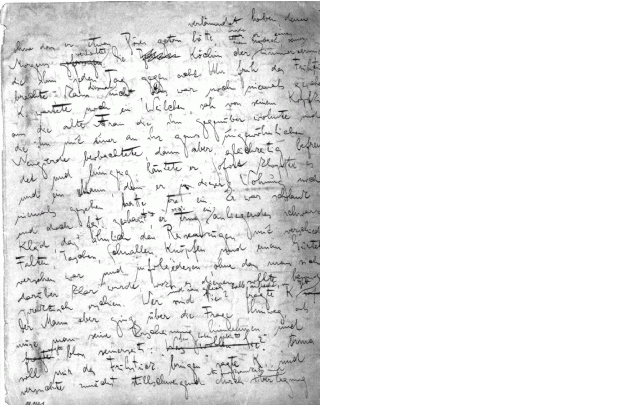 verleumdet haben denn
ohne dass er etwas Böses getan hätte
Morgens verhaftet Die Köchin der
die ihm jeden Tag gegen acht Uhr früh das
brachte kam diesmal nicht. Das war noch niemals
K. wartete noch ein Weilchen, sah von seinem
aus die alte Frau die ihm gegenüber wohnte und
die ihn mit einer an ihr ganz ungewöhnlichen
Neugierde beobachtete, dann aber, gleichzeitig befrem
det und hungrig, läutete er. Sofort klopfte es
und ein Mann, den er in dieser Wohnung noch
niemals gesehen hatte trat ein. Er war schlank
und doch fest gebaut, er trug ein anliegendes schwarzes
Kleid, das ähnlich den Reiseanzügen mit
Falten, Taschen, Schnallen, Knöpfen und einem Gürtel
versehen war und infolgedessen, ohne dass man sich
darüber klar wurde, wozu es dienen sollte,
praktisch erschien. Wer sind Sie? fragte K.
Der Mann aber ging über die Frage hinweg, als
müsse man seine Erscheinung hinnehmen und
bloss seinerseits:
soll mir das Frühstück bringen, sagte K. und
versuchte zunächst stillschweigend durch Überlegung